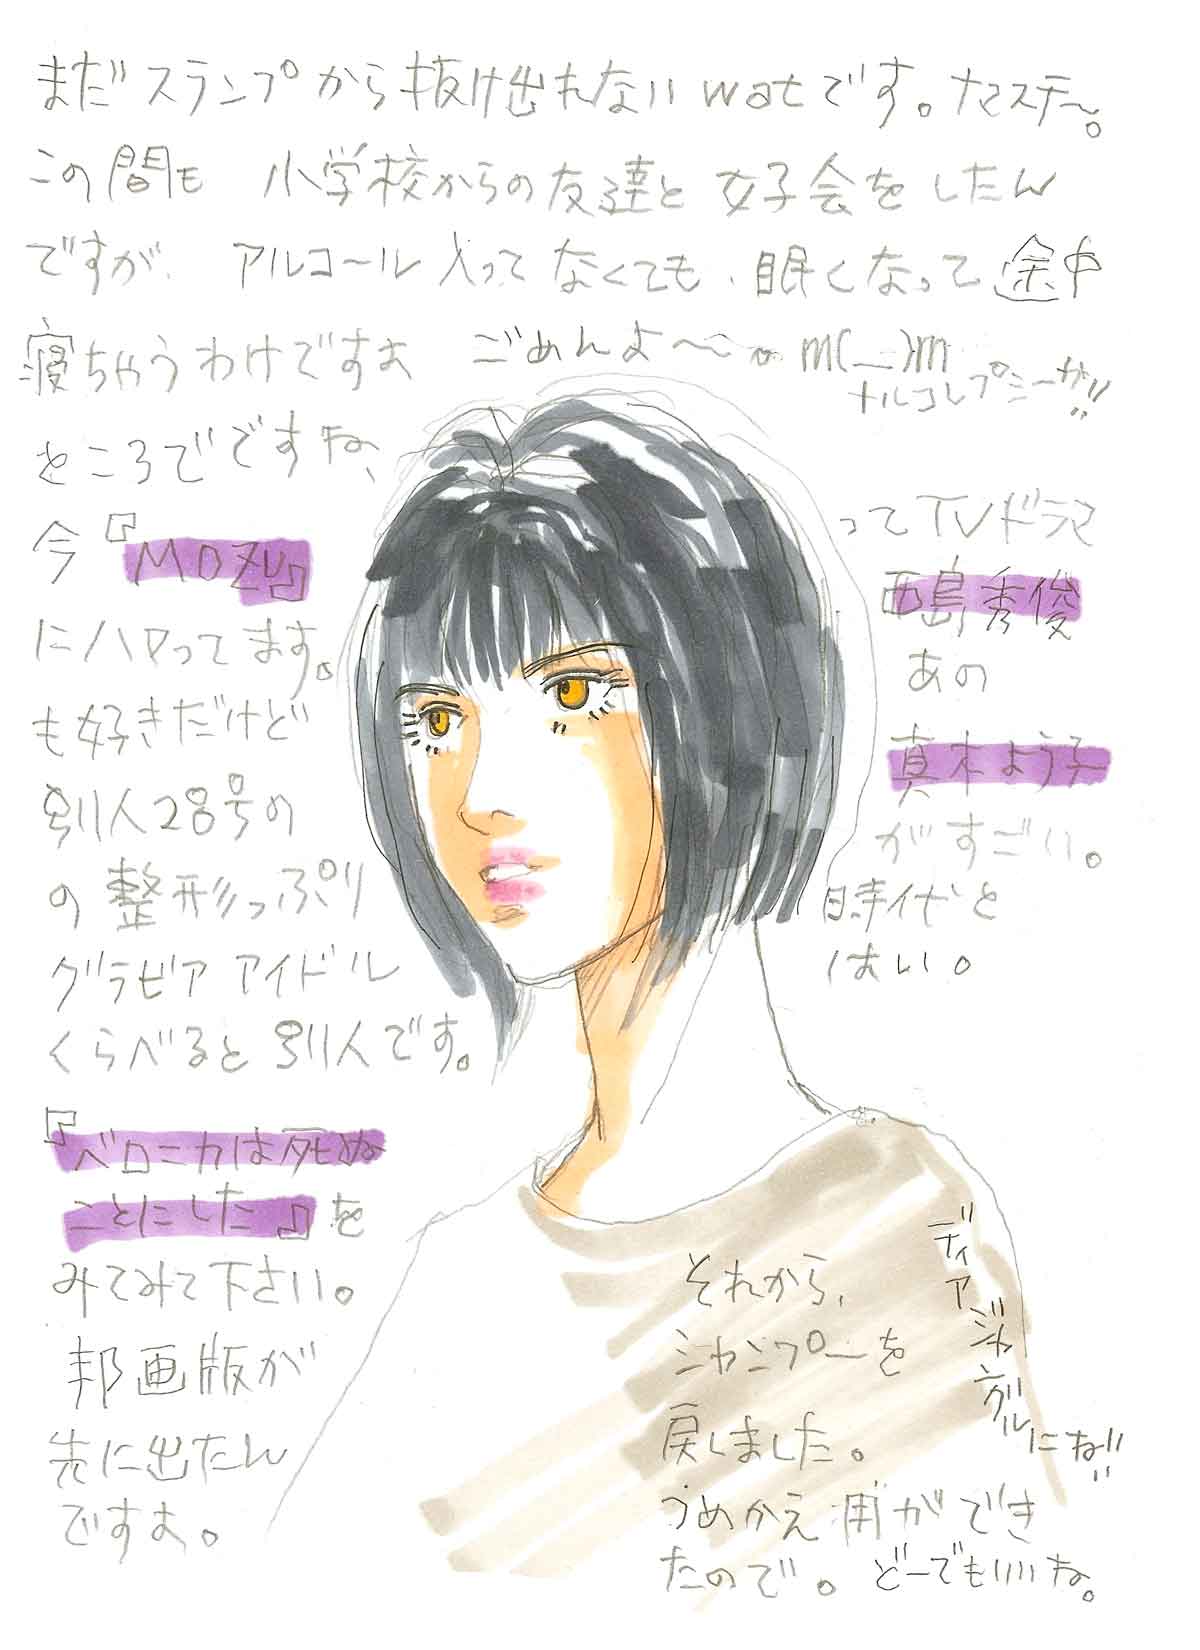 まだスランプから抜け出れないwatです。ナマステ〜。
この間も 小学校からの友達と 女子会をしたん
ですが、アルコール入ってなくても、眠くなって途中
寝ちゃうわけですよ ごめんよ〜〜。m(__)m
ナルコレプシーか!!
ところでですね、
今『MOZU』ってTVドラマ
にハマってます。西島秀俊
も好きだけど あの
別人28号の 真木よう子
がすごい。
の整形っぷり 時代と
グラビアアイドル はい。
くらべると 別人です。
『ベロニカは死ぬ
ことにした』を
みてみて下さい。
邦画版が
先に出たん
ですよ。
それから、
シャンプーを
戻しました。
ディア ジャングルにね!!
うめかえ用ができ
たので。どーでもいいね。